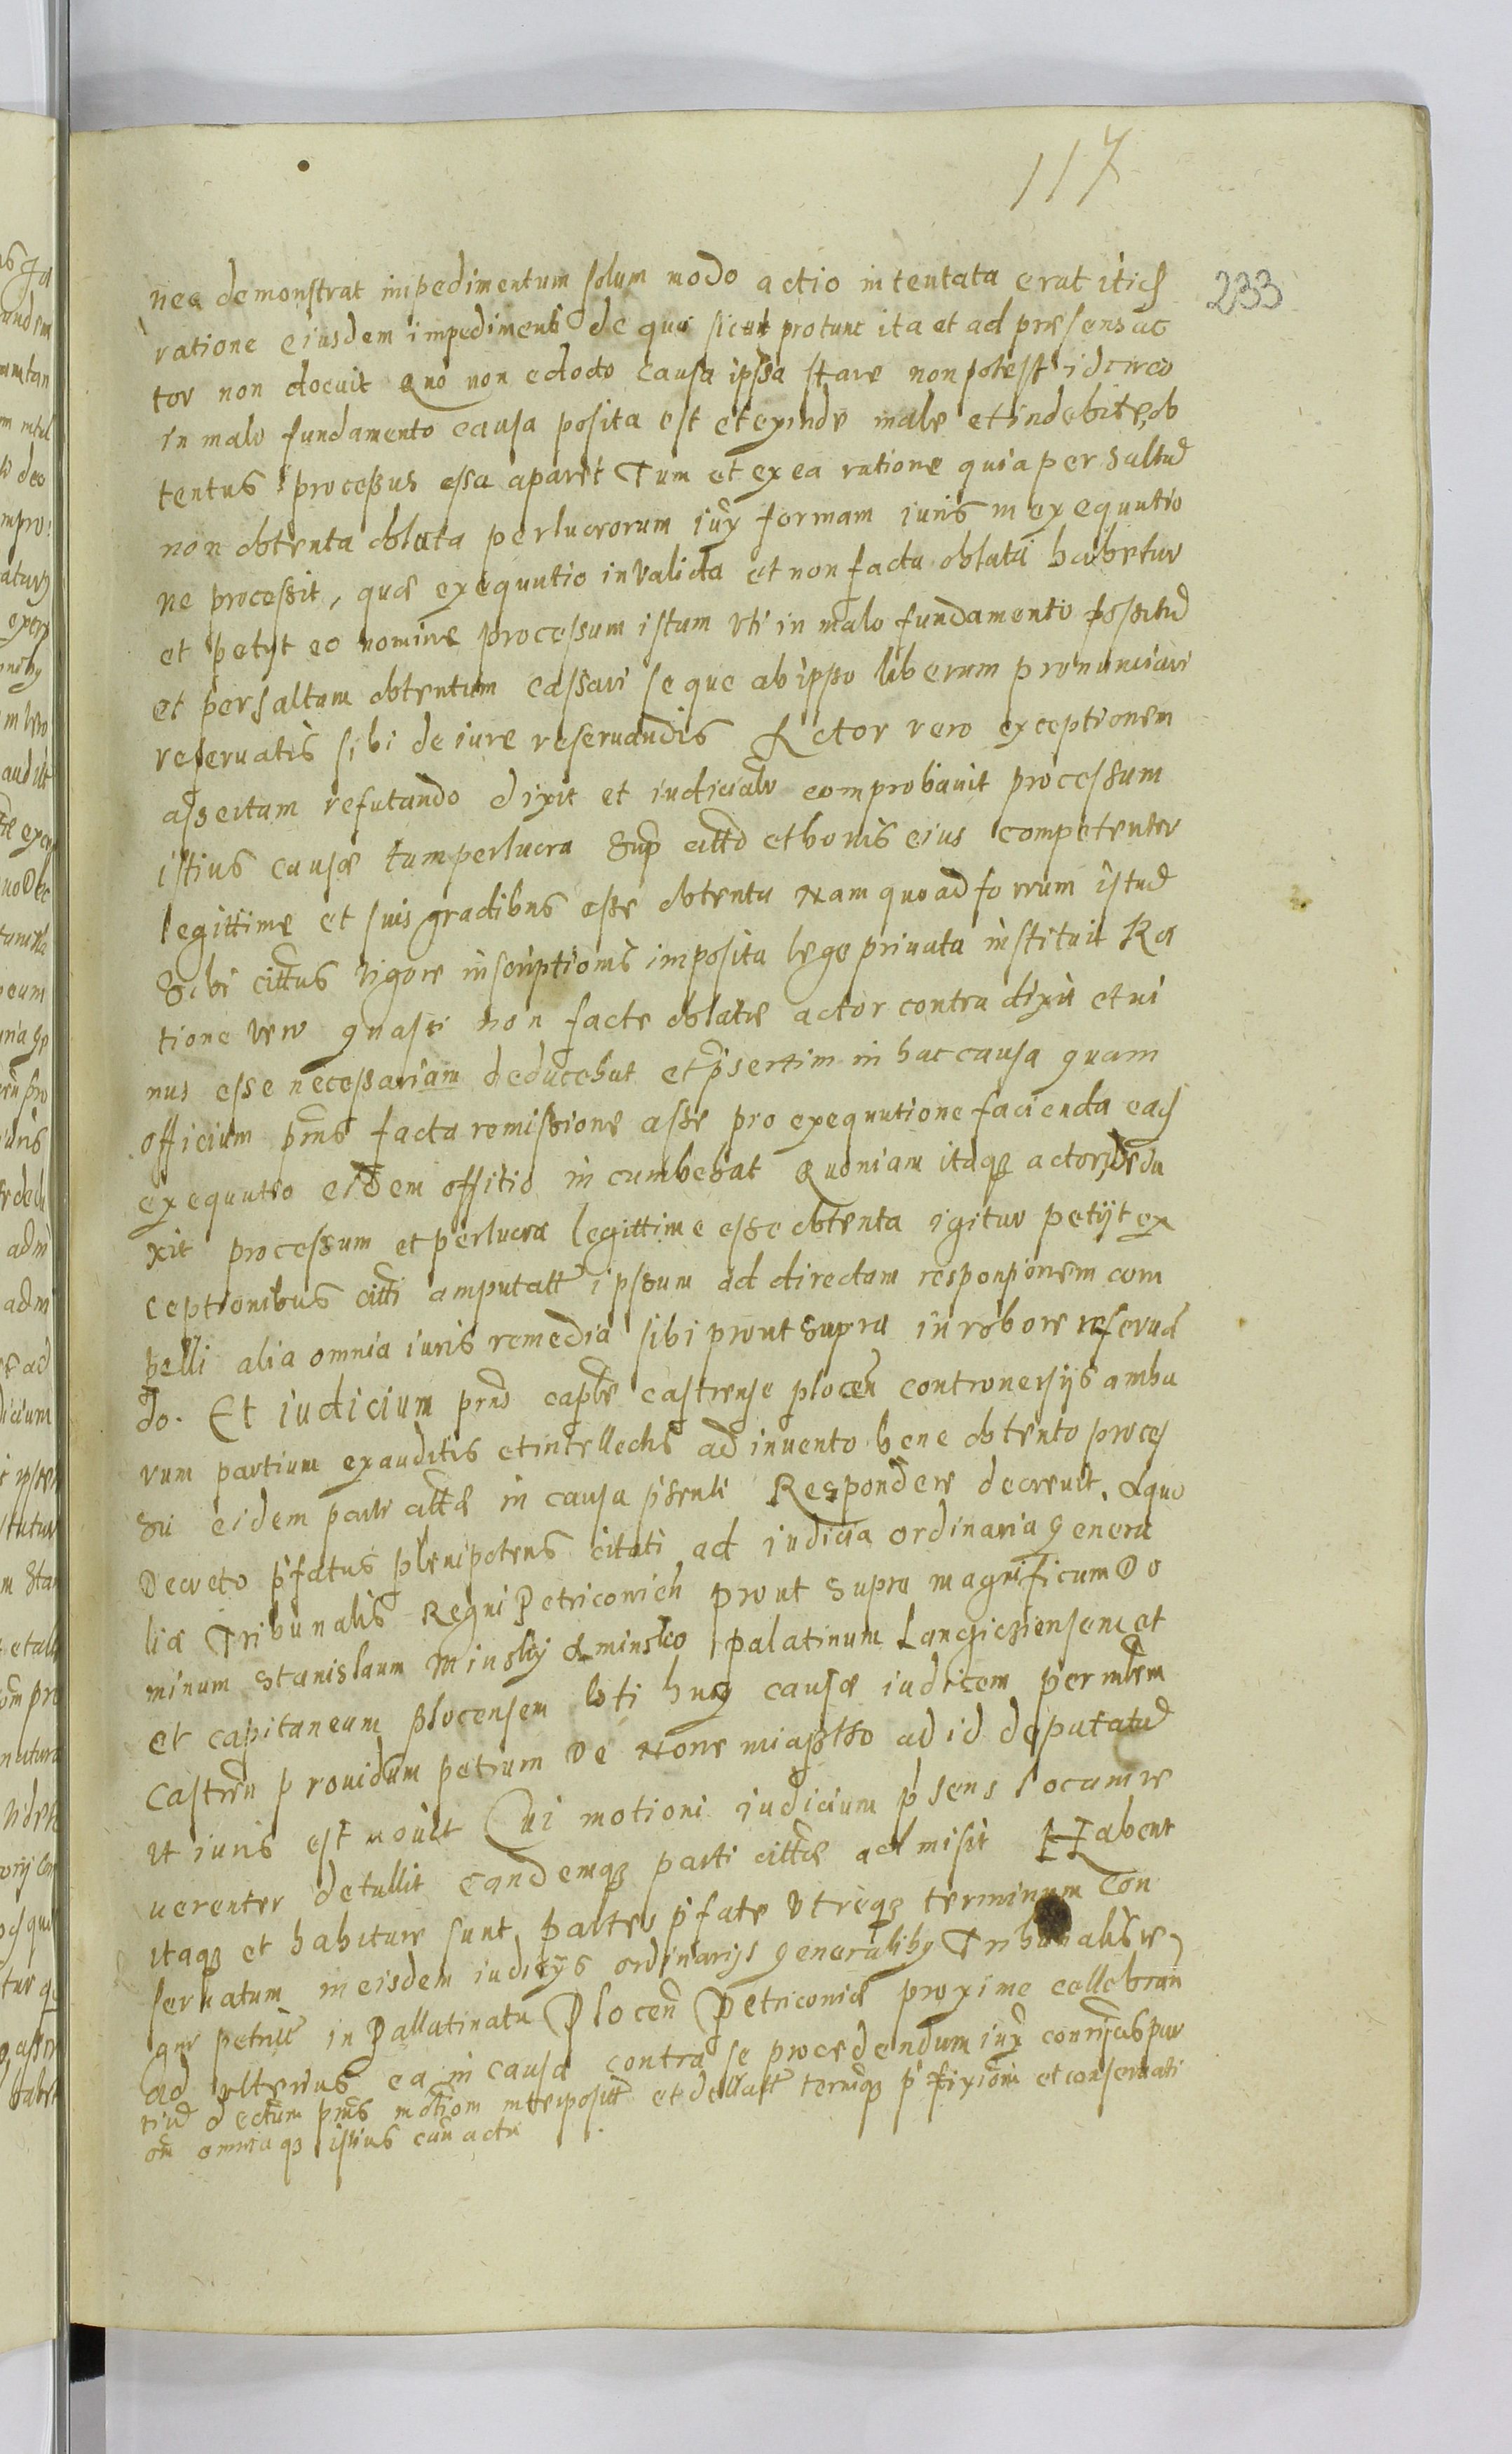 117
233
nec demonstrat impedimentum solum modo actio intentata erat itids
ratione eiusdem impedimenti de quo sicut protunc ita et ad præsens ac
tor non docuit Quo non edocto causa ipsa stare non potest idcirco
in malo fundamento causa posita est et exinde male et indebite ob
tentus processus esse aparet Tum et ex ea ratione quia per saltud
non obtenta oblata perlucrorum iux formam iuris in exequutio
ne processit, quæ exequutio invalida et non facta oblata habetur
et petyt eo nomine processum istum uti in malo fundamento positud
et per saltum obtentum cassari se que ab ipso liberum pronunciari
reseruatis sibi de iure reseruandis Actor vero exceptionem
assertam refutando dixit et iudicialr comprobauit processum
istius causæ tum perlucra sup cittd et bonis eius competenter
legittime et suis gradibus esse obtenta Nam quo ad forum istud
Sibi cittus vigore inscriptionis imposita lege priuata instituit Ra
tione vero quasi non facte oblatæ actor contra dixit et mi
nus esse necessariam deducebat et pserttim in hac causa quam
officium pns facta remissione asse pro exequutione facienda eads
exequutio eidem offitio incumbebat Quoniam itaq actor dedu
xit processum et perlucra legittime esse obtenta igitur petijt ex
ceptionibus citti amputatt ipsum ad directam responsionem com
pelli alia omnia iuris remedia sibi prout supra in robore reseruã
do. Et iudicium pns captle castrense plocen̄ controuersijs amba
rum partium exauditis et intellectis ad inuento bene obtento proces
su eidem parti cittæ in causa psenti Respondere decreuit, A quo
Decreto pfatus plenipotens citati ad iudicia ordinaria genera
lia Tribunalis Regni Petriconien̄ prout supra magnificum Do
minum Stanislaum Minsky de minsko palatinum Lanciciensem et
et capitaneum plocensem loti huy causæ iudicem per mltem
Castren prouidum petrum De None miastho ad id deputatud
ut iuris est mouit Cui motioni iudicium psens locum re
uerenter detullit eandemq parti cittæ admisit Habent
itaq et habiture sunt partes pfate utreq terminum Con
seruatum in eisdem iuditijs ordinarijs generaliby Tribunalis re
gni petrictt in Pallatinatu Plocen̄ Petriconiæ proxime cellebran
Ad ulterius ea in causa contra se procedendum iux conrijas par
tiud dectum pns motiom interpositt et dellatt termiq pfixiom et conseruati
om omniaq istius cau actu